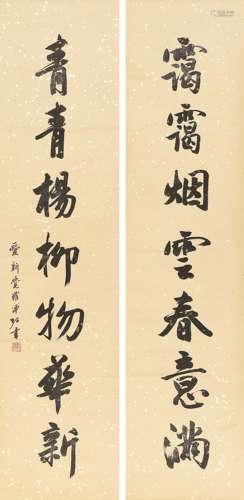 靄靄烟雲春意滿
青青楊柳物華新
愛新覺羅溥佐書